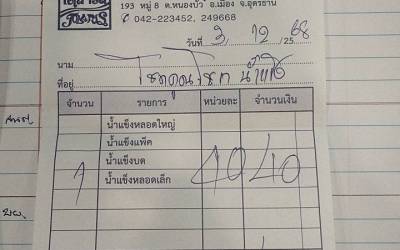 193 หมู่ 8 ต.หนองบัว อ.เมือง จ.อุดรธานี
✆ 042-223452, 249668
วันที่ 3/12/2568
นาม โชคคูณโชค น้ำแข็ง
ที่อยู่
จำนวน รายการ หน่วยละ จำนวนเงิน
น้ำแข็งหลอดใหญ่
น้ำแข็งแพ็ค
1 น้ำแข็งบด 40 40
น้ำแข็งหลอดเล็ก